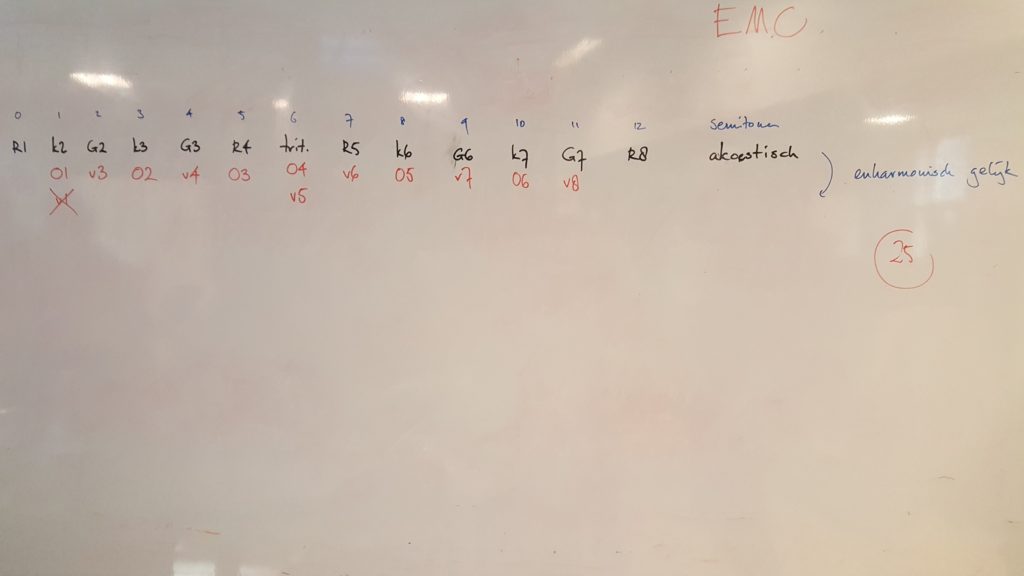 EMC
0 1 2 3 4 5 6 7 8 9 10 11 12 semitonen
R1 k2 G2 k3 G3 R4 trit. R5 k6 G6 k7 G7 R8 akoestisch
O1 v3 O2 v4 O3 O4 v6 O5 v7 O6 v8 enharmonisch gelijk
v5
25